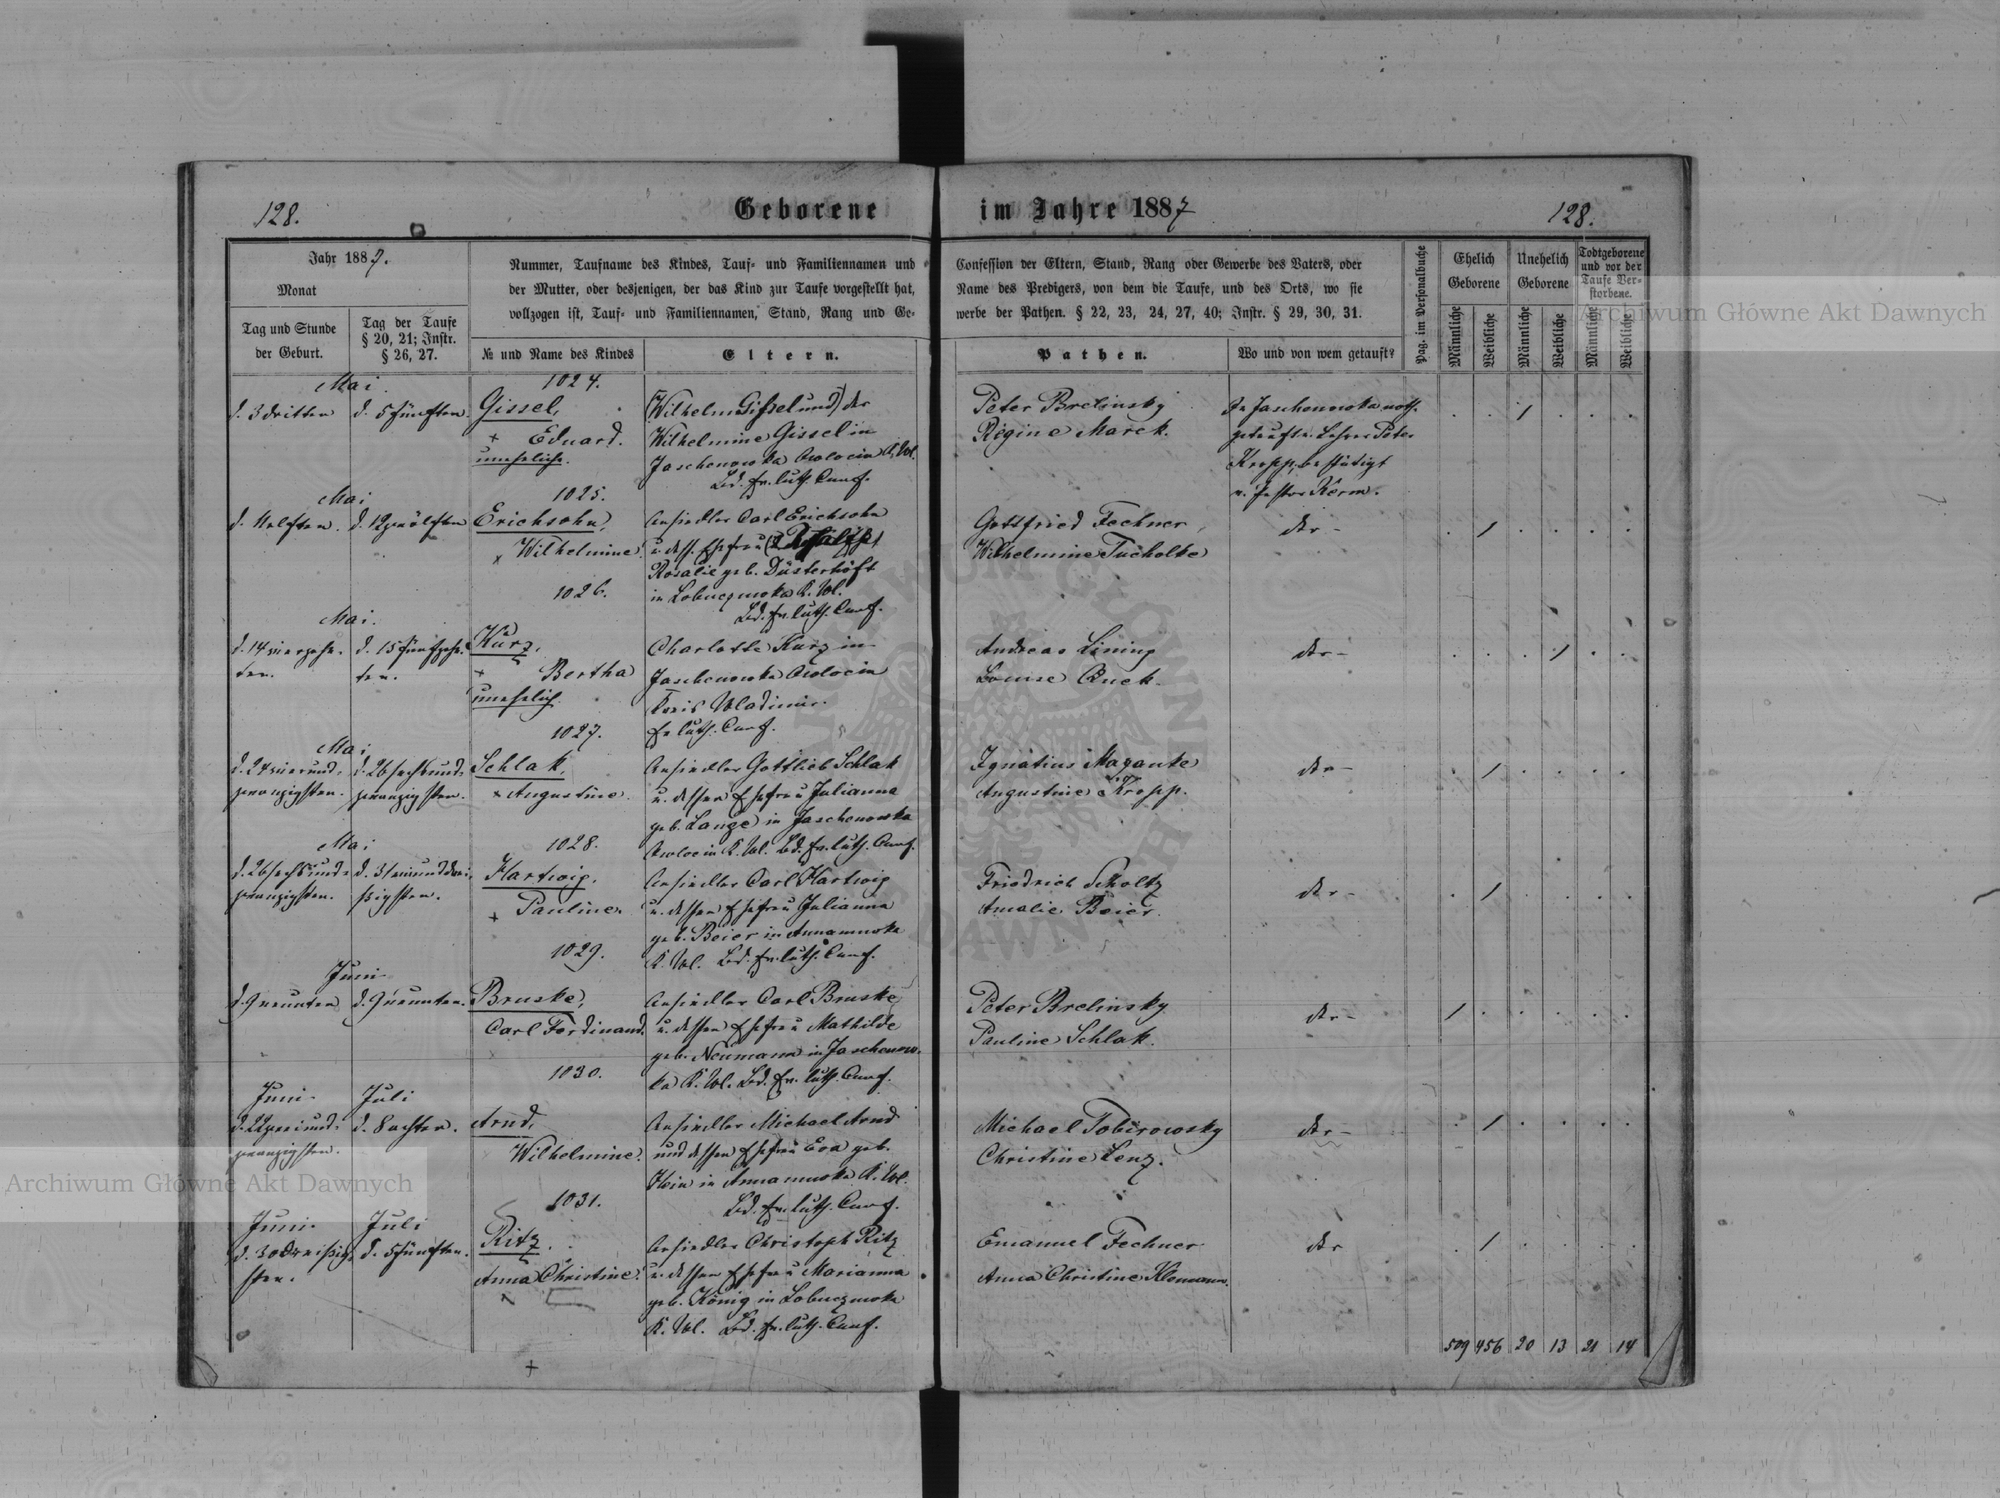 128.
Geborene im Jahre 1887
128.
Jahr 1887.
Monat
Tag und Stunde
der Geburt.
Tag der Taufe
§ 20, 21; Instr.
§ 26, 27.
Nummer, Taufname des Kindes, Tauf- und Familiennamen und
der Mutter, oder desjenigen, der das Kind zur Taufe vorgestellt hat,
vollzogen ist, Tauf- und Familiennamen, Stand, Rang und Ge-
№ und Name des Kindes
Eltern.
Confession der Eltern, Stand, Rang oder Gewerbe des Vaters, oder
Name des Predigers, von dem die Taufe, und des Orts, wo sie
werbe der Pathen. § 22, 23, 24, 27, 40; Instr. § 29, 30, 31.
Pathen.
Wo und von wem getauft?
Pag. im Personalbuche
Ehelich
Geborene
Unehelich
Geborene
Todtgeborene
und vor der
Taufe Ver-
storbene.
Männliche
Weibliche
Männliche
Weibliche
Männliche
Weibliche
Mai.
1024.
d. 3 dritten
d. 5 fünften.
Gissel,
Eduard.
unehelich.
(Wilhelm Gissel und) der
Wilhelmine Gissel in
Jaschenowka
Bd. ev. luth. Conf.
Peter Brelinsky
Regine Marck.
In Jaschenowka noth-
getauft v. Lehrer Peter
Kropp, bestätigt
v. Pastor Kerm.
Mai
1025.
d. 11 elften.
d. 12 zwölften
Erichsohn,
Wilhelmine.
Ansiedler Carl Erichsohn
u. dess. Ehefrau
Rosalie geb. Düsterhöft
in K. Wl.
Bd. ev. luth. Conf.
Gottfried Fechner,
Wilhelmine Tucholke
der-
1026.
Mai.
d. 14 vierzehn-
ten.
d. 15 fünfzehn-
ten.
Kurz,
Bertha
unehelich.
Charlotte Kurz in
Jaschenowka
Kreis Wladimir.
ev. luth. Conf.
Andreas Lining
Louise Quek.
der-
1027.
Mai
d. 24 vierund-
zwanzigsten.
d. 26 sechsund-
zwanzigsten.
Schlak,
Augustine.
Ansiedler Gottlieb Schlak
u. dessen Ehefrau Julianna
geb. Lange in Jaschenowka
K. Wl. Bd. ev. luth. Conf.
Ignatius Maganke
Augustine Kropp.
der-
Mai
1028.
d. 26 sechsund-
zwanzigsten.
d. 31 einunddrei-
ßigsten.
Hartwig,
Pauline.
Ansiedler Carl Hartwig
u. dessen Ehefrau Julianna
geb. Beier in Annamuska
K. Wl. Bd. ev. luth. Conf.
Friedrich Scholtz
Amalie Beier.
der-
1029.
Juni
d. 9 neunten
d. 9 neunten.
Bruske,
Carl Ferdinand.
Ansiedler Carl Bruske
u. dessen Ehefrau Mathilde
geb. Neumann in Jaschenow-
ka K. Wl. Bd. ev. luth. Conf.
Peter Brelinsky
Pauline Schlak.
der-
1030.
Juni
Juli
d. 22 zweiund-
zwanzigsten.
d. 8 achten.
Arnd,
Wilhelmine.
Ansiedler Michael Arnd
und dessen Ehefrau Eva geb.
in Annamuska K. Wl.
Bd. ev. luth. Conf.
Michael Tobirowsky
Christine Lenz.
der-
1031.
Juni
Juli
d. 30 dreißig-
sten.
d. 5 fünften.
Ritz,
Anna Christine.
Ansiedler Christoph Ritz
u. dessen Ehefrau Marianna
geb. König in
K. Wl. Bd. ev. luth. Conf.
Emanuel Fechner
Anna Christine Klemann.
der
509 456 20 13 21 14
Archiwum Główne Akt Dawnych
Archiwum Główne Akt Dawnych